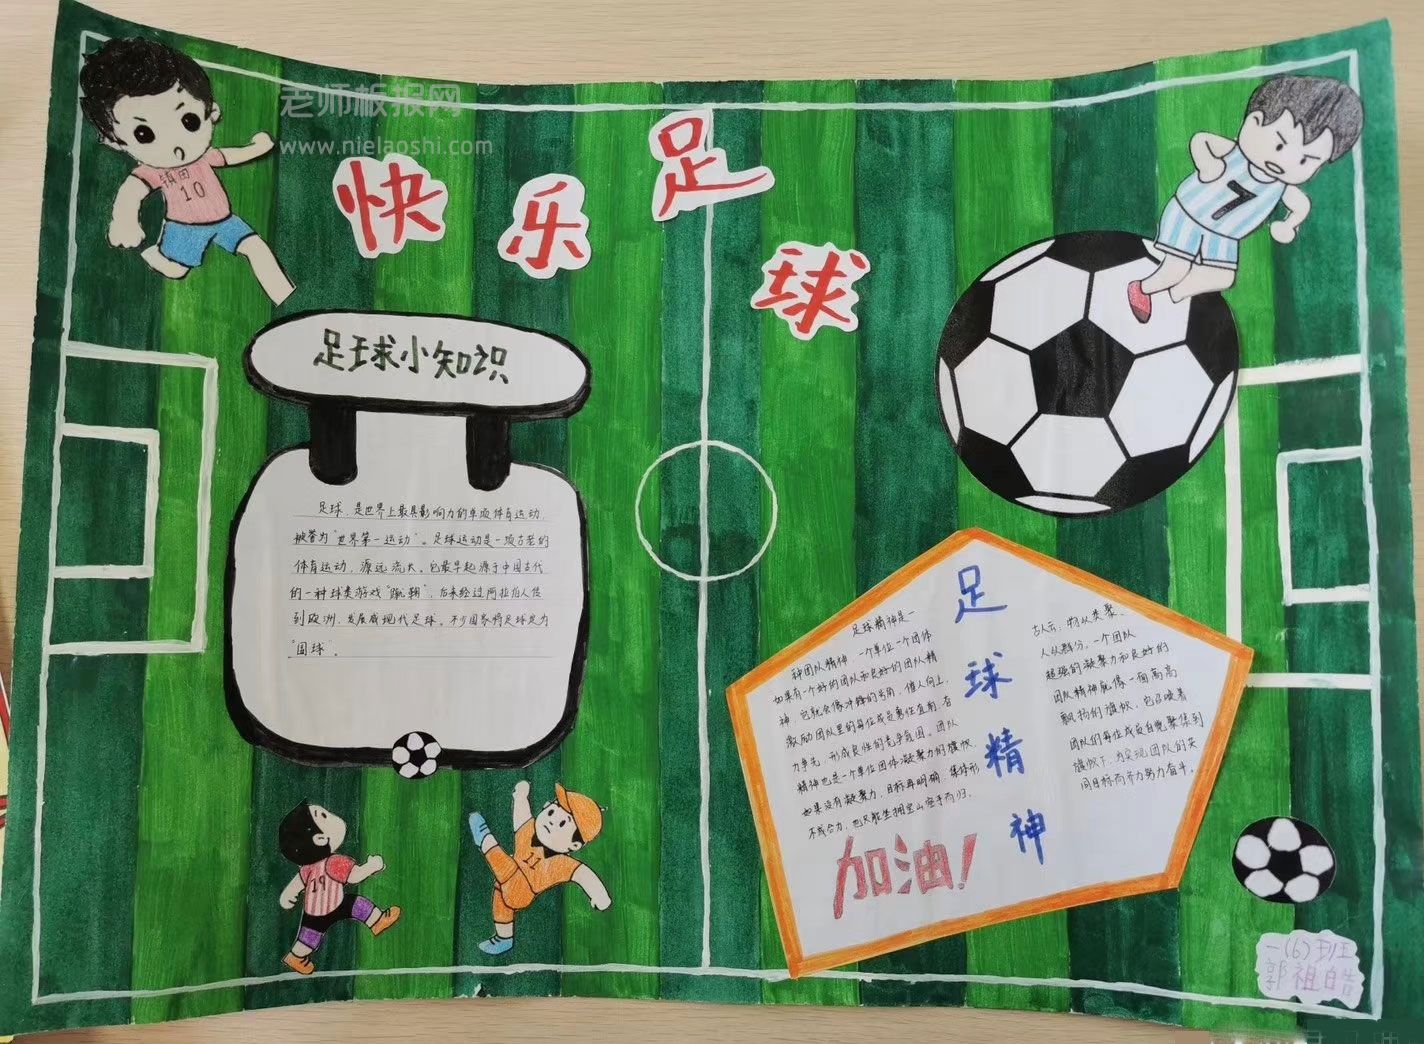 老师板报网
www.nielaoshi.com
快乐足球
镇田
10
7
足球小知识
足球,是世界上最具影响力的单项体育运动,
被誉为"世界第一运动"。足球运动是一项古老的
体育运动,源远流长。它最早起源于中国古代
的一种球类游戏"蹴鞠",后来经过阿拉伯人传
到欧洲,发展成现代足球。不少国家将足球定为
"国球"。
19
11
足球精神
足球精神是一
种团队精神,一个单位一个团体
如果有一个好的团队和良好的团队精
神,它就会像冲锋的号角,催人向上,
激励团队里的每位成员勇往直前,奋
力争先,形成良性的竞争氛围。团队
精神也是一个单位团体凝聚力的旗帜,
如果没有凝聚力,目标再明确,集体形
不成合力,也只能坐拥宝山空手而归。
古人云:物以类聚、
人以群分。一个团队
超强的凝聚力和良好的
团队精神就像一面高高
飘扬的旗帜,它召唤着
团队的每位成员自觉聚集到
旗帜下,为实现团队的共
同目标而齐力努力奋斗。
加油!
一(6)班
郭祖皓